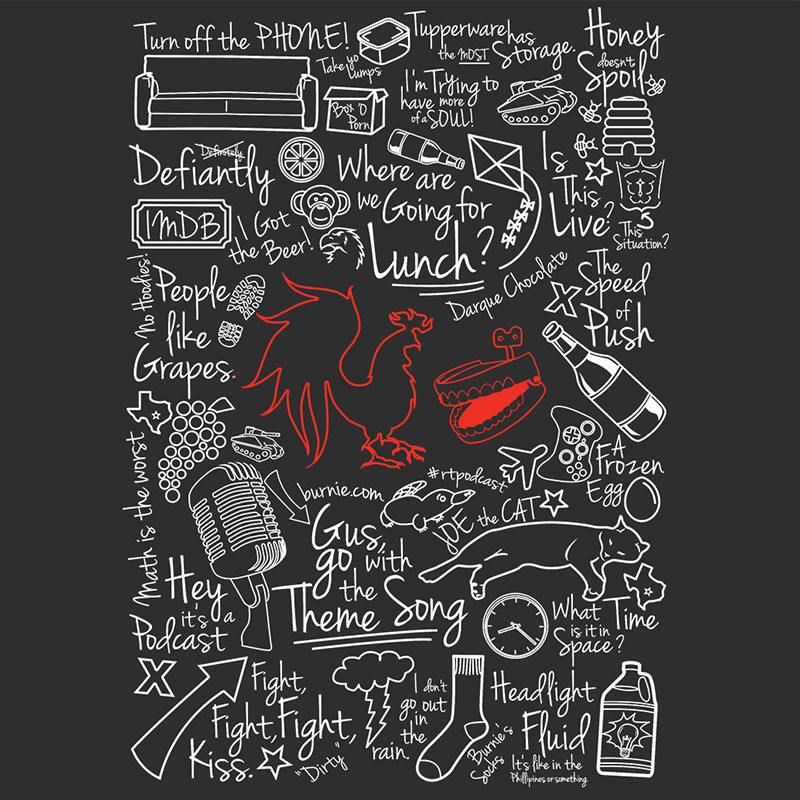 Turn off the PHONE!
Take yo
Lumps
Tupperware has
the MOST Storage.
Honey
doesn't
Spoil
Box O
Porn
I'm Trying to
have more
of a SOUL!
Definitely
Defiantly
IMDB
I Got
the Beer!
Where are
we Going for
Lunch?
Is
This
Live?
This
Situation?
No Hoodies!
People
like
Grapes.
Darque Chocolate
The
Speed
of
Push
Math is the worst
burnie.com
#rtpodcast
JOE the CAT
FA
Frozen
Egg
Gus,
go with
the
Theme Song
Hey
it's a
Podcast
What Time
is it in
Space?
Fight,
Fight, Fight,
Kiss.
"Dirty"
I don't
go out
in
the
rain.
Burnie's
Socks
Headlight
Fluid
It's like in the
Phillipines or something.